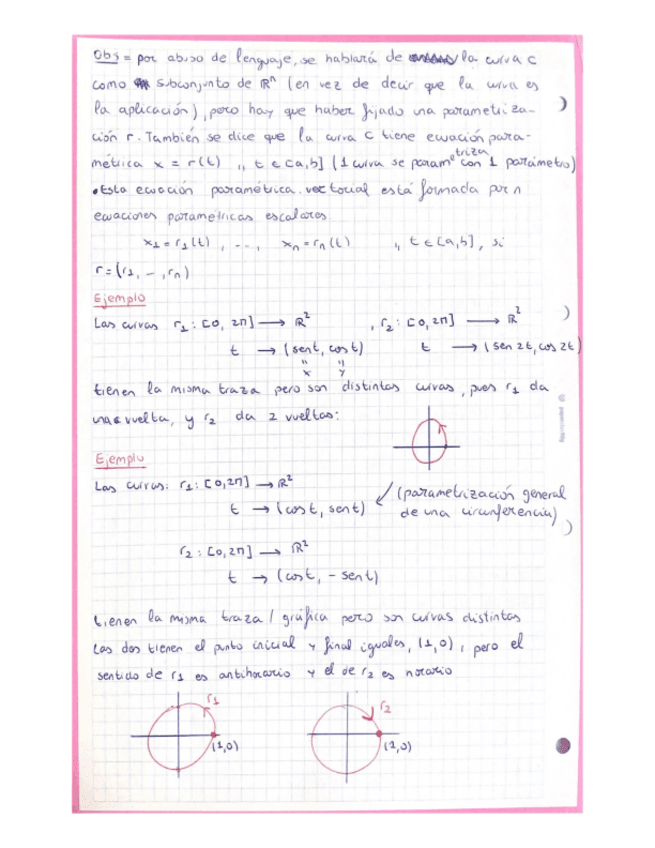 Obs = por abuso de lenguaje, se hablará de la curva C
como subconjunto de ℝⁿ (en vez de decir que la curva es
la aplicación), pero hay que haber fijado una parametriza-
ción r. También se dice que la curva C tiene ecuación para-
métrica x = r(t) ,, t ∈ [a,b] (1 curva se parametriza con 1 parámetro)
• Esta ecuación paramétrica vectorial está formada por n
ecuaciones paramétricas escalares
x₁ = r₁(t) , ..., xₙ = rₙ(t) ,, t ∈ [a,b], si
r = (r₁, -, rₙ)
Ejemplo
Las curvas r₁: [0, 2π] → ℝ² , r₂: [0, 2π] → ℝ²
t → (sent, cost) t → (sen 2t, cos 2t)
" "
x y
tienen la misma traza pero son distintas curvas, pues r₁ da
una vuelta, y r₂ da 2 vueltas:
Ejemplo
Las curvas: r₁: [0, 2π] → ℝ²
t → (cost, sent) (parametrización general
de una circunferencia)
r₂: [0, 2π] → ℝ²
t → (cost, - sent)
tienen la misma traza / gráfica pero son curvas distintas
Las dos tienen el punto inicial y final iguales, (1,0), pero el
sentido de r₁ es antihorario y el de r₂ es horario
r₁ r₂
(1,0) (1,0)